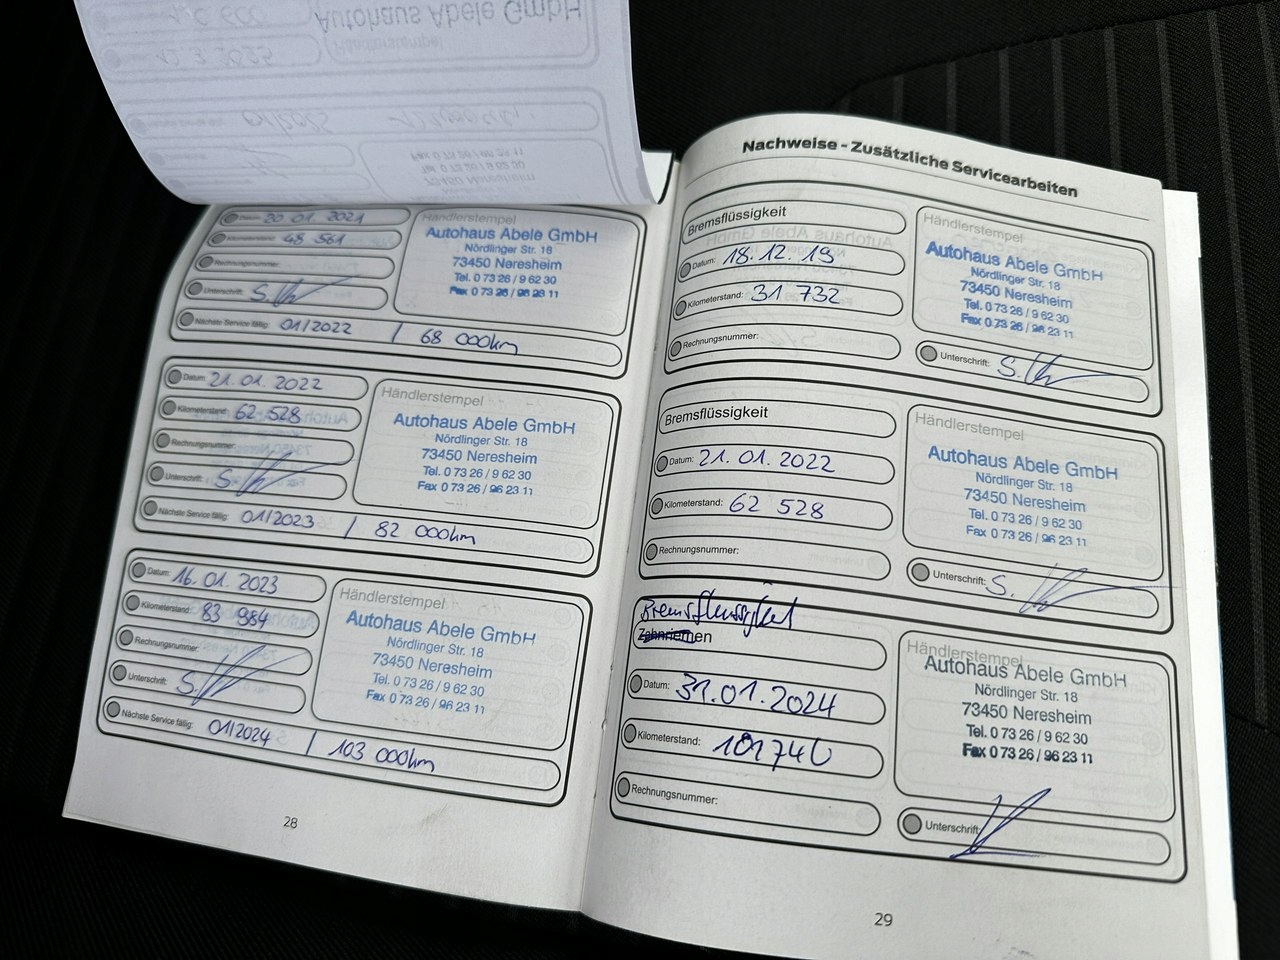 Autohaus Abele GmbH
Händlerstempel
12.3.2025
Fax 0 73 26 / 96 23 11
Tel. 0 73 26 / 9 62 30
73450 Neresheim
Datum: 20.01.2021
Kilometerstand: 48 561
Rechnungsnummer:
Unterschrift:
Nächste Service fällig: 01/2022 / 68 000km
Händlerstempel
Autohaus Abele GmbH
Nördlinger Str. 18
73450 Neresheim
Tel. 0 73 26 / 9 62 30
Fax 0 73 26 / 96 23 11
Datum: 21.01.2022
Kilometerstand: 62 528
Rechnungsnummer:
Unterschrift:
Nächste Service fällig: 01/2023 / 82 000km
Händlerstempel
Autohaus Abele GmbH
Nördlinger Str. 18
73450 Neresheim
Tel. 0 73 26 / 9 62 30
Fax 0 73 26 / 96 23 11
Datum: 16.01.2023
Kilometerstand: 83 984
Rechnungsnummer:
Unterschrift:
Nächste Service fällig: 01/2024 / 103 000km
Händlerstempel
Autohaus Abele GmbH
Nördlinger Str. 18
73450 Neresheim
Tel. 0 73 26 / 9 62 30
Fax 0 73 26 / 96 23 11
28
Nachweise - Zusätzliche Servicearbeiten
Bremsflüssigkeit
Datum: 18.12.19
Kilometerstand: 31 732
Rechnungsnummer:
Händlerstempel
Autohaus Abele GmbH
Nördlinger Str. 18
73450 Neresheim
Tel. 0 73 26 / 9 62 30
Fax 0 73 26 / 96 23 11
Unterschrift:
Bremsflüssigkeit
Datum: 21.01.2022
Kilometerstand: 62 528
Rechnungsnummer:
Händlerstempel
Autohaus Abele GmbH
Nördlinger Str. 18
73450 Neresheim
Tel. 0 73 26 / 9 62 30
Fax 0 73 26 / 96 23 11
Unterschrift:
Bremsflüssigkeit
Zahnriemen
Datum: 31.01.2024
Kilometerstand: 101740
Rechnungsnummer:
Händlerstempel
Autohaus Abele GmbH
Nördlinger Str. 18
73450 Neresheim
Tel. 0 73 26 / 9 62 30
Fax 0 73 26 / 96 23 11
Unterschrift:
29